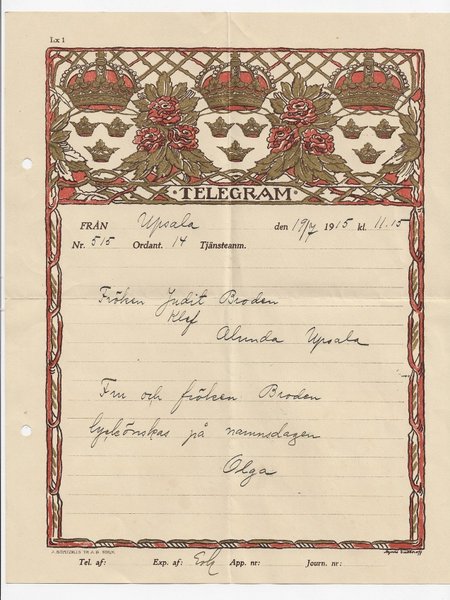 Lx 1
·TELEGRAM·
FRÅN Upsala den 19/7 1915 kl. 11.15
Nr. 515 Ordant. 14 Tjänsteanm.
Fröken Judit Broden
Klef
Alunda Upsala
Fru och fröken Broden
lyckönskas på namnsdagen
Olga
Tel. af: Exp. af: App. nr: Journ. nr: